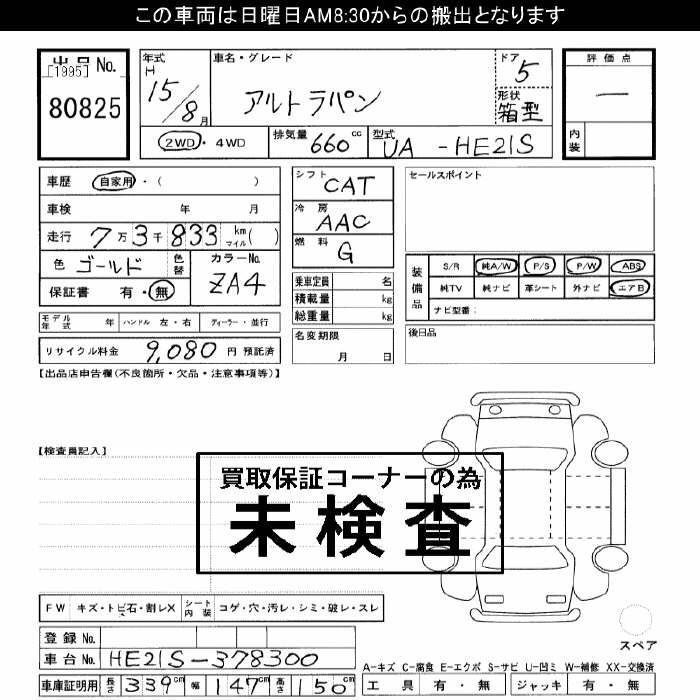 この車両は日曜日AM8:30からの搬出となります
出品No.
[1995]
80825
年式
H
15/8月
車名・グレード
アルトラパン
ドア
5
形状
箱型
2WD・4WD
排気量 660cc
型式 UA-HE21S
評価点
—
内装
車歴 自家用・( )
車検 年 月
走行 7万3千833 km マイル( )
色 ゴールド 色替
カラーNo.
ZA4
保証書 有・無
シフト CAT
冷房 AAC
燃料 G
乗車定員 名
積載量 kg
総重量 kg
セールスポイント
装備品
S/R 純A/W P/S P/W ABS
純TV 純ナビ 革シート 外ナビ エアB
ナビ型番:
モデル年式 年 ハンドル 左・右 ディーラー・並行
リサイクル料金 9,080円 預託済
名変期限
月 日
後日品
【出品店申告欄(不良箇所・欠品・注意事項等)】
【検査員記入】
買取保証コーナーの為
未検査
FW キズ・トビ石・割レX シート内装 コゲ・穴・汚レ・シミ・破レ・スレ
登録No.
車台No. HE21S-378300
車庫証明用 長さ 339cm 幅 147cm 高さ 150cm
スペア
A-キズ C-腐食 E-エクボ S-サビ U-凹ミ W-補修 XX-交換済
工具 有・無 ジャッキ 有・無